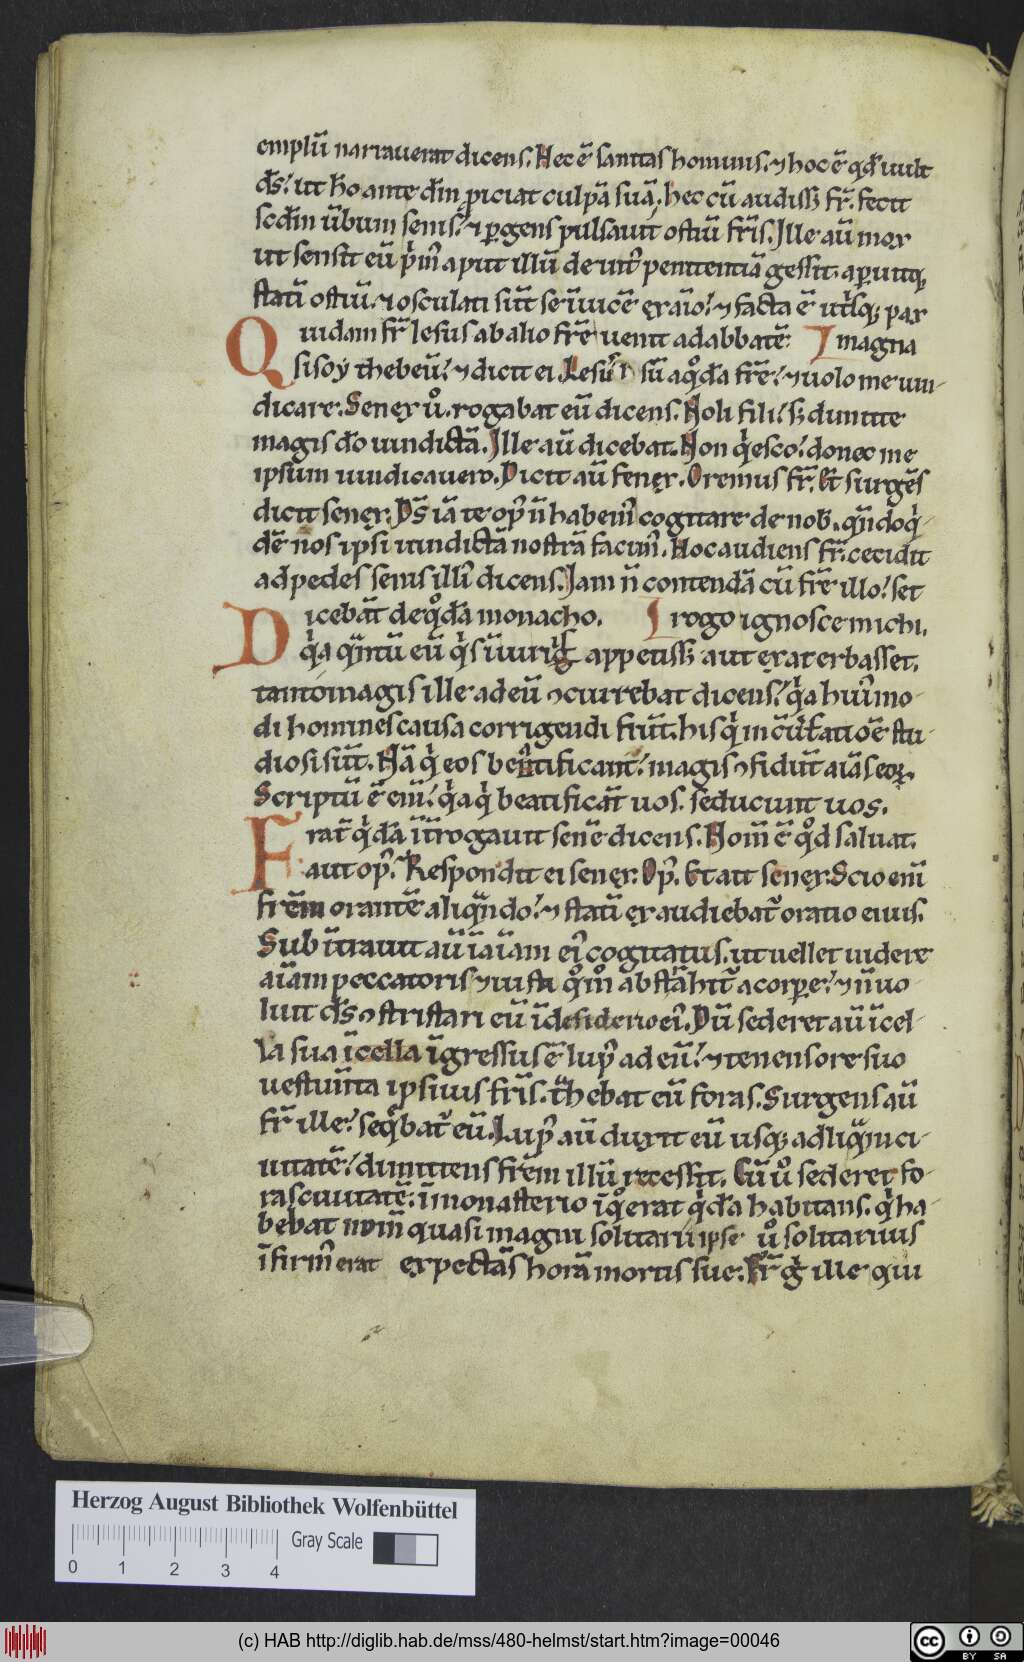 emplū narrauerat dicens. Hec ē sanitas hominis. ⁊ hoc ē qd̄ uult
d̄s. ut ho ante dm̄ piciat culpā suā. hec cū audiss; fr̄. fecit
scdm̄ ūbum senis. ⁊ pgens pulsauit ostiū fr̄is. Ille aū mox
ut sensit eū pim aput illū de uit penitentiā gessit. aperuitq;
statū ostiū. ⁊ osculati sūt se īuicē ex aīo. ⁊ facta ē utsq; pax
Quidam fr̄ lesus ab alio fr̄e uenit ad abbatē I magna
sisoy thebeū. ⁊ dicit ei. Lesus sū a qdā fr̄e. ⁊ uolo me uin-
dicare. Senex ů. rogabat eū dicens. Noli fili. s; dimitte
magis dō uindictā. Ille aū dicebat. Non qesco. donec me
ipsum uindicauero. Dicit aū senex. Oremus fr̄. Et surgēs
dicit senex. D̄s iā te op n̄ habem cogitare de nob. qn̄doq-
dē nos ipsi uindictā nostrā facim. Hoc audiens fr̄. cecidit
ad pedes senis illi dicens. Iam n̄ contendā cū fr̄e illo. set
Dicebāt de qdā monacho. I rogo ignosce michi.
qa qntū eū qs īuurig appetiss; aut exaterbasset.
tanto magis ille ad eū ɔcurrebat dicens. qa huimo-
di homines causa corrigendi sūt. his q in cūsatiōe stu-
diosi sūt. Nā q eos beatificant. magis ɔfidūt aīas eor.
Scriptū ē enī. qa q beatificāt uos. seducunt uos.
Frat qdā īterogauit senē dicens. Nom ē qd saluat.
aut op. Respondit ei senex. Op. Et ait senex. Scio enī
frēm orantē aliqndo. ⁊ statū exaudiebat oratio eius.
Sub ītrauit aū īaīam ei cogitatus. ut uellet uidere
aīam peccatoris ⁊ iusti qm abstāhit a corpe. ⁊ n̄ uo
luit d̄s ɔstristari eū ī desiderio ei. Dū sederet aū ī cel-
la sua ī cella īgressus ē lup ad eū. ⁊ tenens ore suo
uestimta ipsius fr̄is. thebat eū foras. Surgens aū
fr̄ ille. seqbat eū. Lup aū duxit eū usq; ad liqm ci-
uitatē. dimittens frēm illū recessit. Cū ů sederet fo-
ras ciuitatē. ī monasterio īq erat qdā habitans. q ha-
bebat nom̄ quasi magni solitarii ipse ů solitarius
īfirm erat expectās horā mortis sue. Fr̄ g ille qui
Herzog August Bibliothek Wolfenbüttel
0 1 2 3 4 Gray Scale
(c) HAB http://diglib.hab.de/mss/480-helmst/start.htm?image=00046
cc BY SA